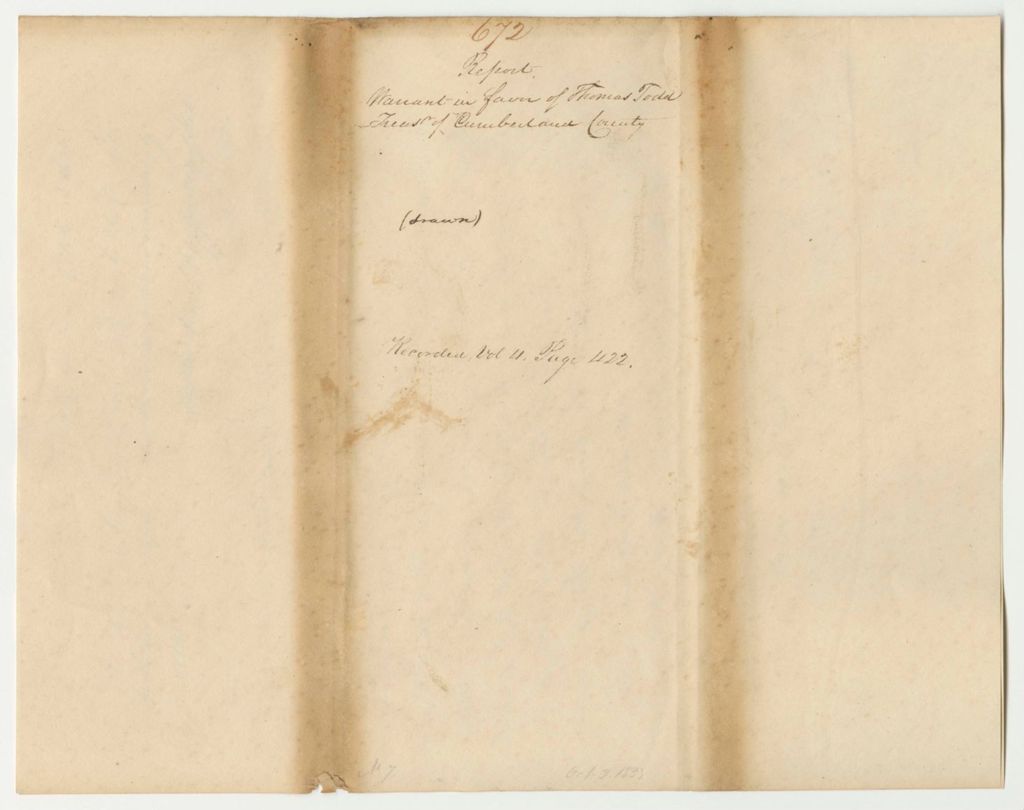 672
Report.
Warrant in favor of Thomas Todd
Treasr of Cumberland County
(drawn)
Recorded, Vol 4. Page 422.